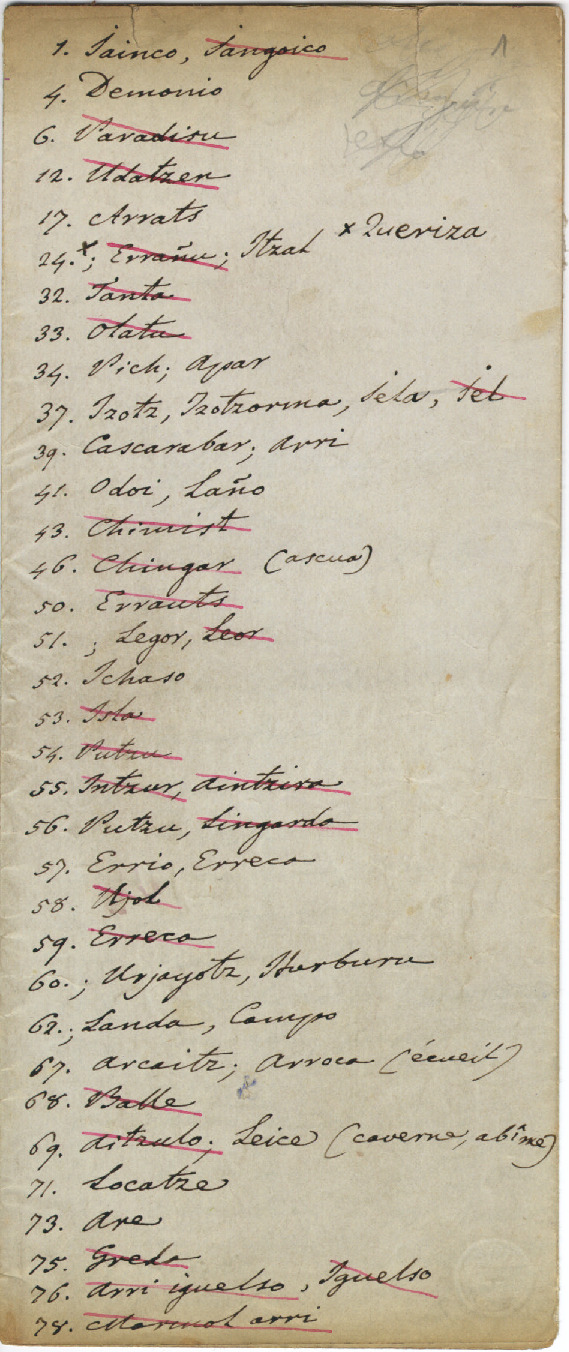 1
1. Jainco, Jangoico
4. Demonio
6. Paradisu
12. Udatzen
17. Arrats
24.x; Errañu; Itzal x Queriza
32. Tanta
33. Olatu
34. Pich; Apar
37. Izotz, Izotzorma, Sela, Sel
39. Cascarabar; Arri
41. Odoi, Laño
43. Chimist
46. Chingar (ascua)
50. Errauts
51. ; Legor, Leor
52. Ichaso
53. Isla
54. Putzu
55. Intzur, Aintzira
56. Putzu, Lingarda
57. Errio, Erreca
58. Ujol
59. Erreca
60. ; Urjayotz, Iturburu
62. ; Landa, Campo
67. Arcaitz; Arroca (écueil)
68. Balle
69. Aitzulo; Leice (caverne, abîme)
71. Locatze
73. Are
75. Greda
76. Arri iguelso, Iguelso
78. Marmol arri